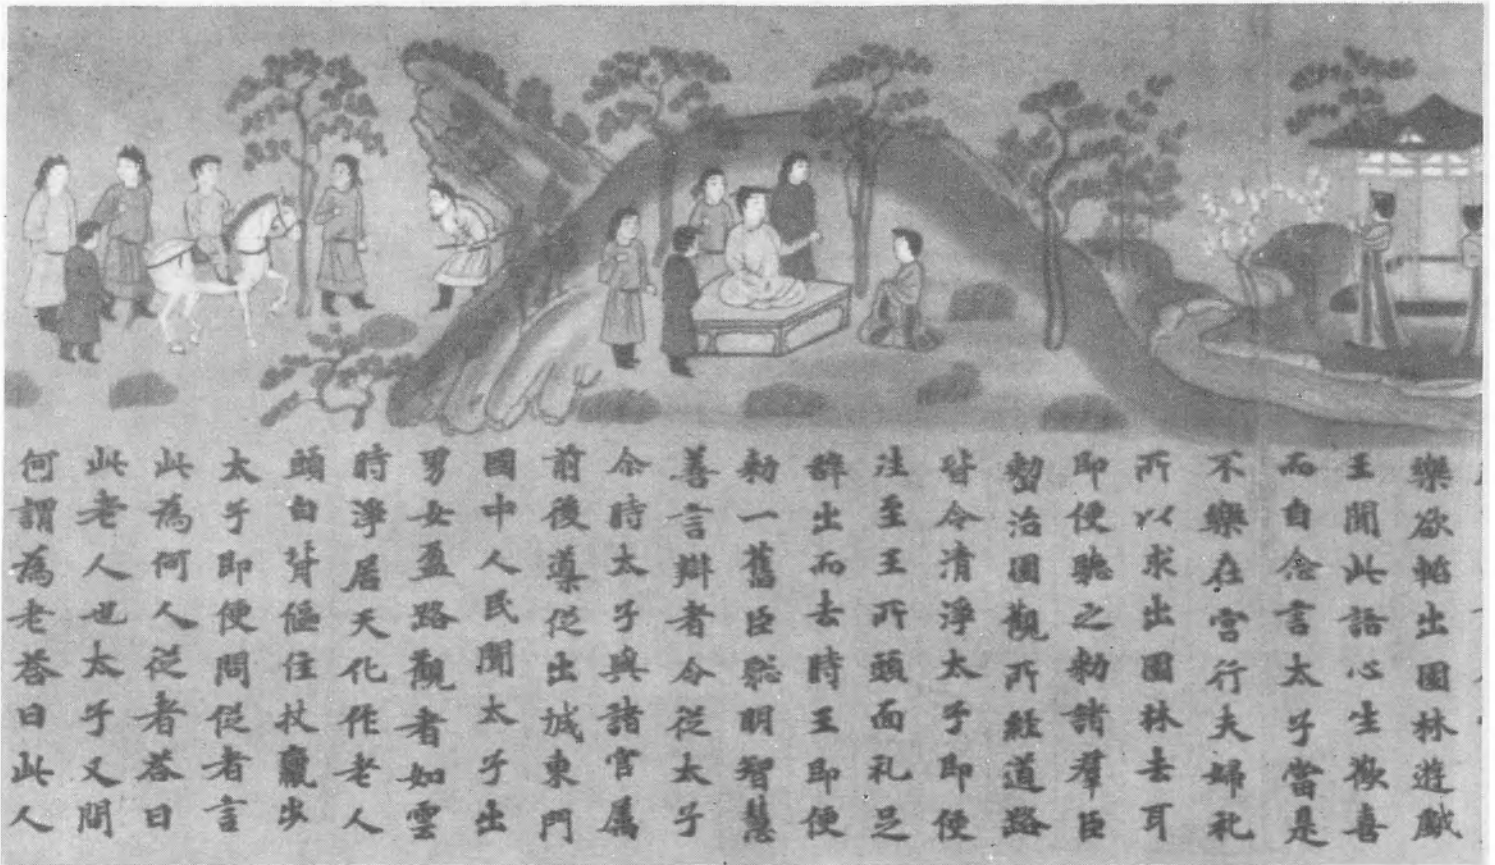 樂欲蹔出園林遊戯
王聞此語心生歡喜
而自念言太子當是
不樂在宮行夫婦礼
所以求出園林去耳
即便聽之勑諸羣臣
整治園觀所經道路
皆令清淨太子即便
往至王所頭面礼足
辞出而去時王即便
勑一舊臣聡明智慧
善言辯者令從太子
尒時太子與諸官属
前後導從出城東門
國中人民聞太子出
男女盈路觀者如雲
時淨居天化作老人
頭白背傴住杖羸步
太子即便問從者言
此為何人從者荅曰
此老人也太子又問
何謂為老荅曰此人